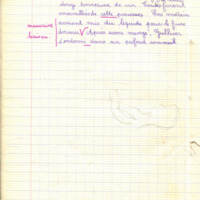 dans tonneaux de vin. Gardefurent
émerveillés de cette prouesse. Les
avaient mis des liquide pour le faire
dormir. Après avoir mangé, Gulliver
s'endormi dans un profond sommeil
mauvaise
liaison.